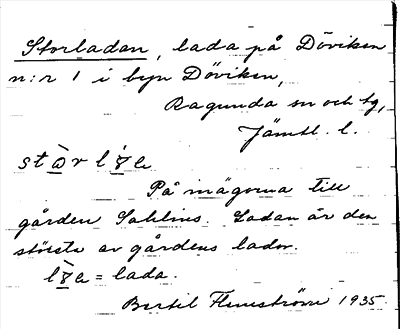 Storladan, lada på Döviken
n:r 1 i byn Döviken,
Ragunda sn och tg,
Jämtl. l.
På inägorna till
gården Sahlins. Ladan är den
största av gårdens lador.
= lada.
Bertil Flemström 1935.